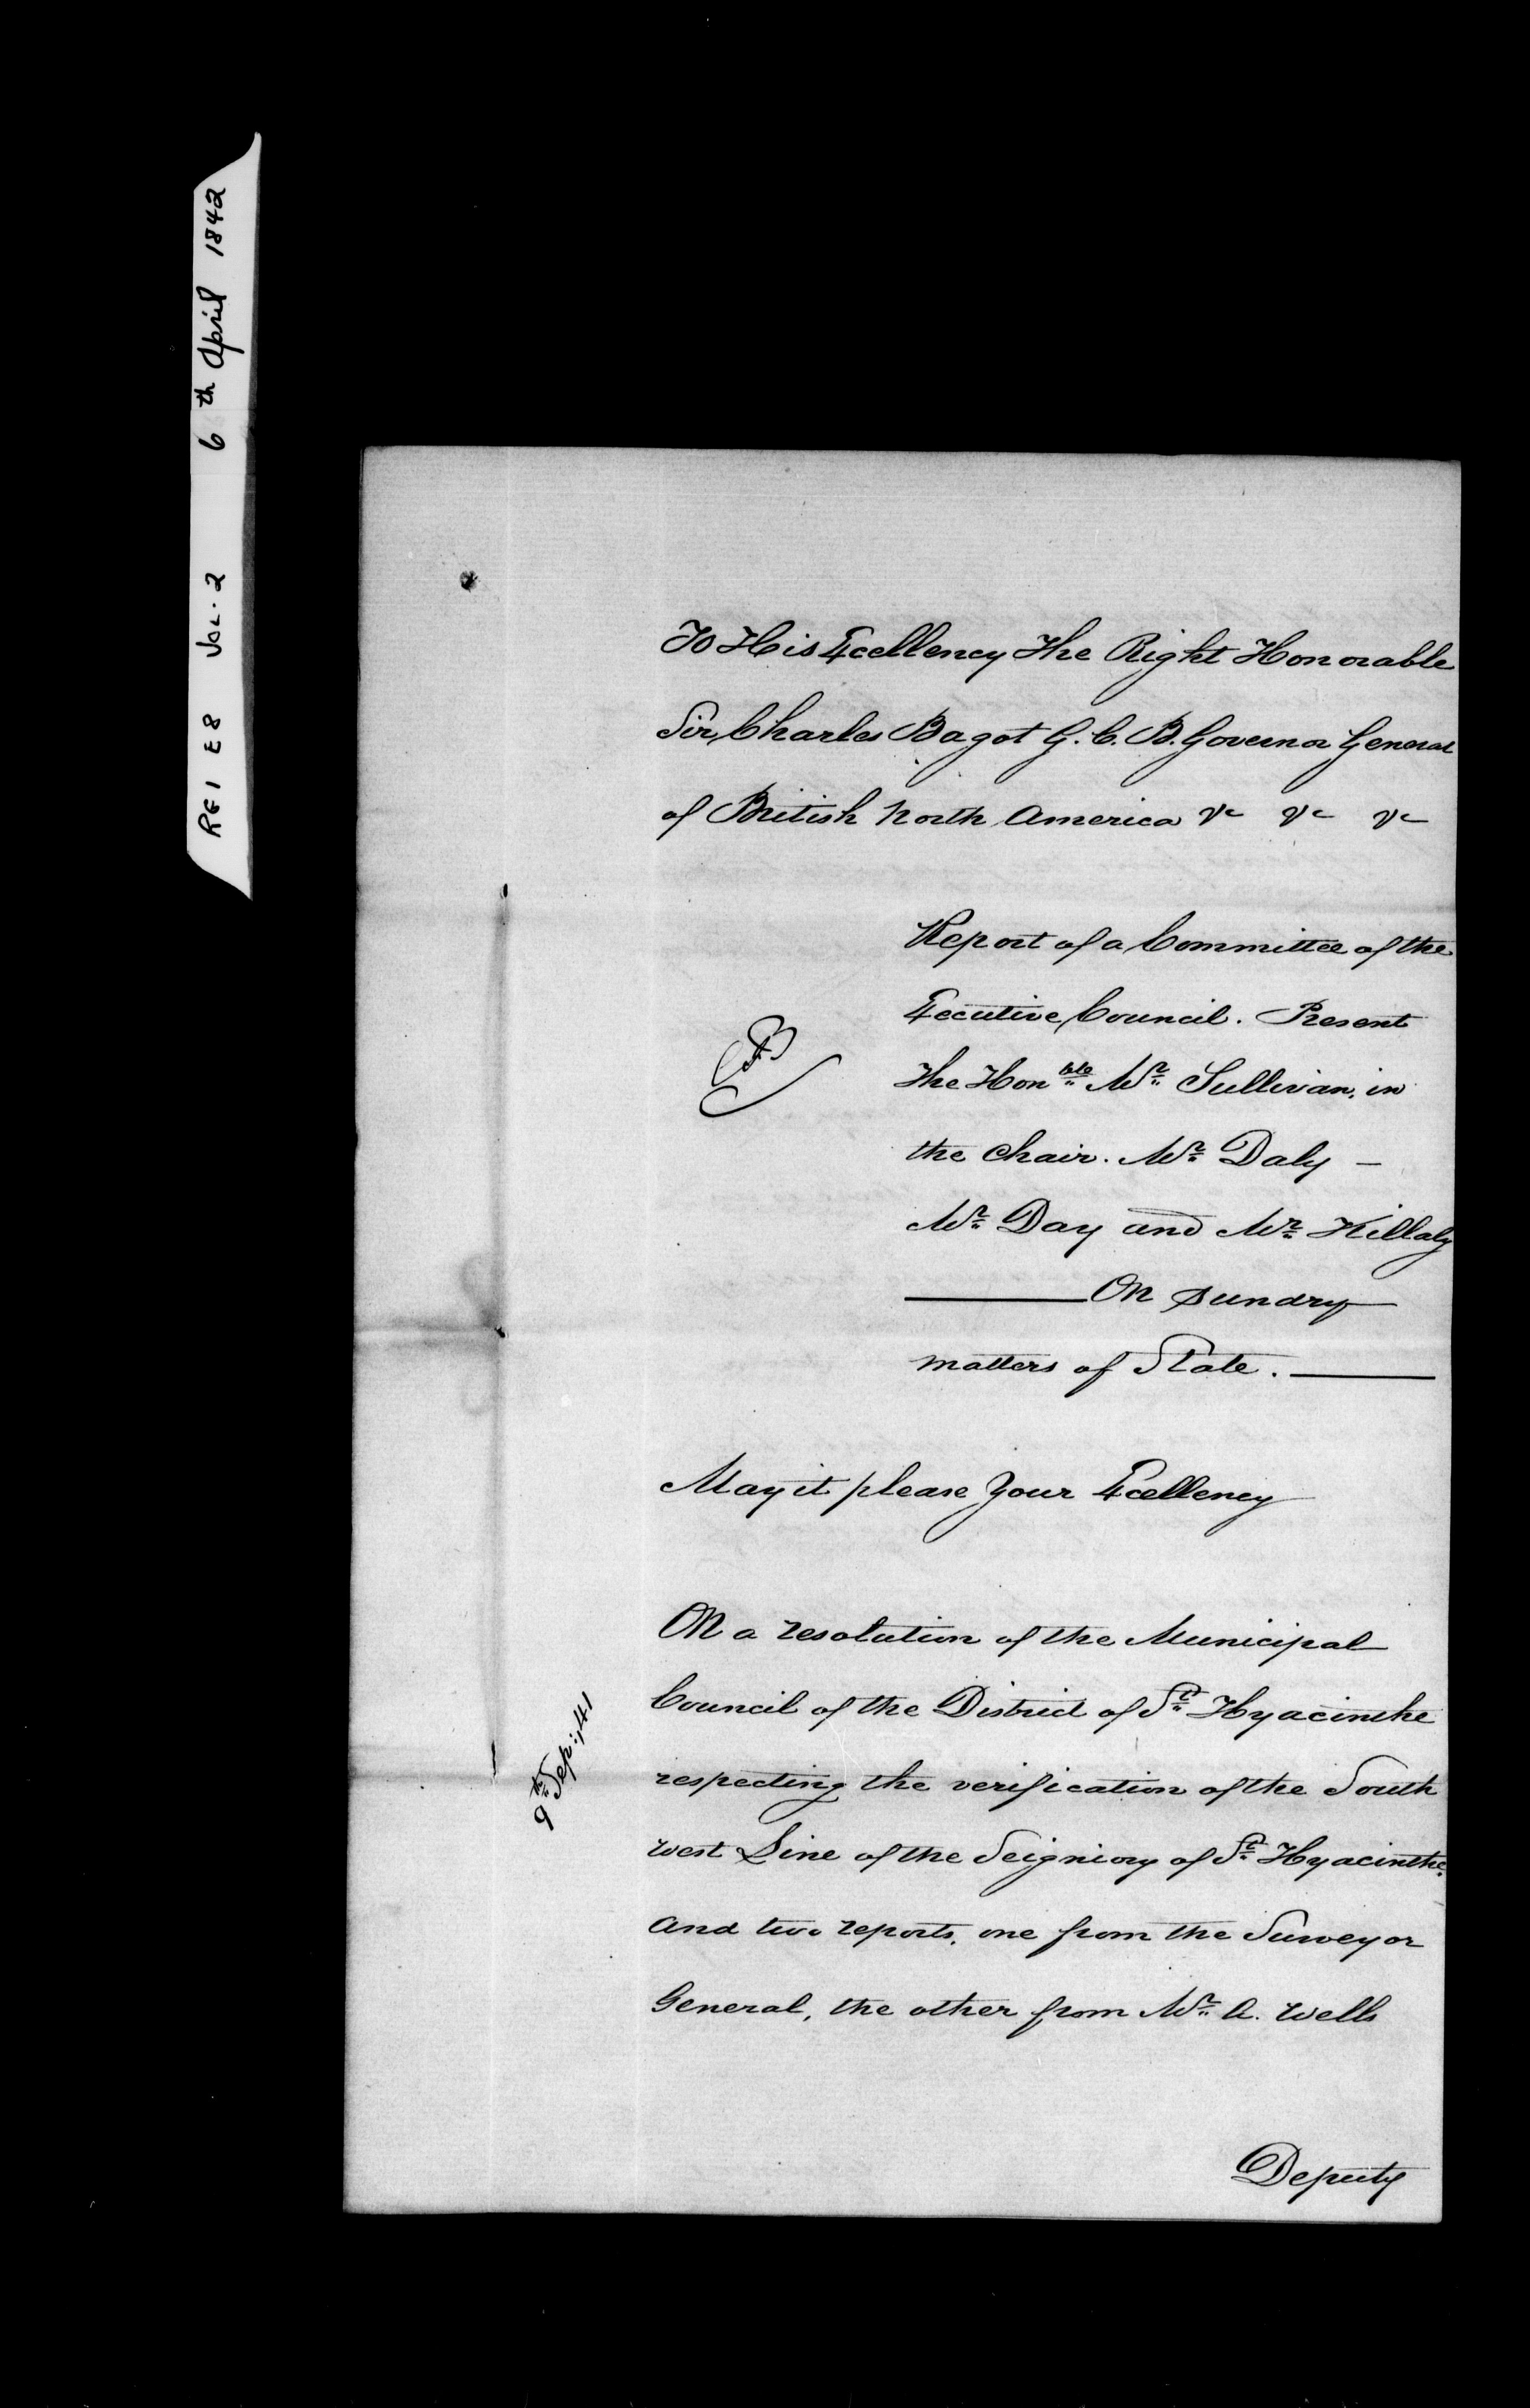 RG1 E8 VOL. 2 6th April 1842
To His Excellency The Right Honorable
Sir Charles Bagot G. C. B. Governor General
of British North America &c &c &c
Report of a Committee of the
Executive Council. Present
The Honble Mr Sullivan, in
the Chair. Mr Daly —
Mr Day and Mr Killaly
On sundry
matters of State.
CB
May it please Your Excellency
On a resolution of the Municipal
Council of the District of St Hyacinthe
respecting the verification of the South
west Line of the Seigniory of St Hyacinthe.
and two reports, one from the Surveyor
General, the other from Mr A. Wells
9th Sep:, 41
Deputy